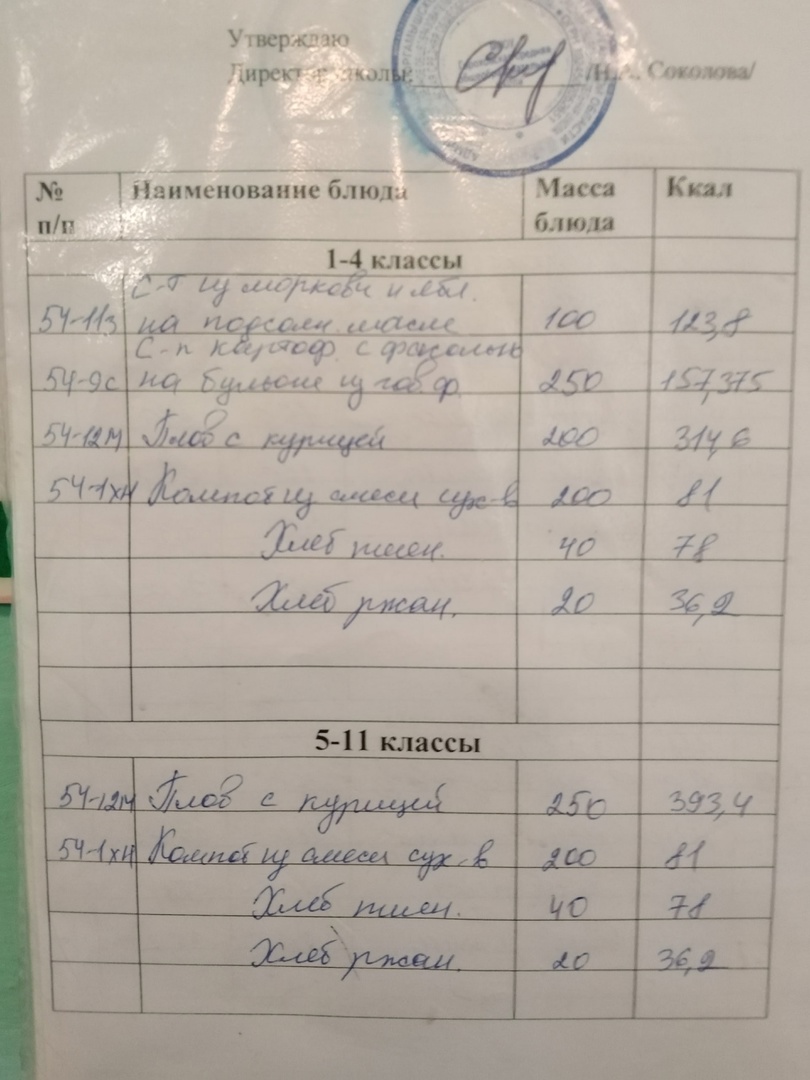 Утверждаю
Директор школы: /Н.А. Соколова/
№ п/п Наименование блюда Масса блюда Ккал
1-4 классы
С-т из моркови и ябл.
54-11з на подсолн. масле 100 123,8
С-п картоф. с фасолью
54-9с на бульоне из гов.ф. 250 157,375
54-12м Плов с курицей 200 314,6
54-1хн Компот из смеси сух-в 200 81
Хлеб пшен. 40 78
Хлеб ржан. 20 36,2
5-11 классы
54-12м Плов с курицей 250 393,4
54-1хн Компот из смеси сух-в 200 81
Хлеб пшен. 40 78
Хлеб ржан. 20 36,2